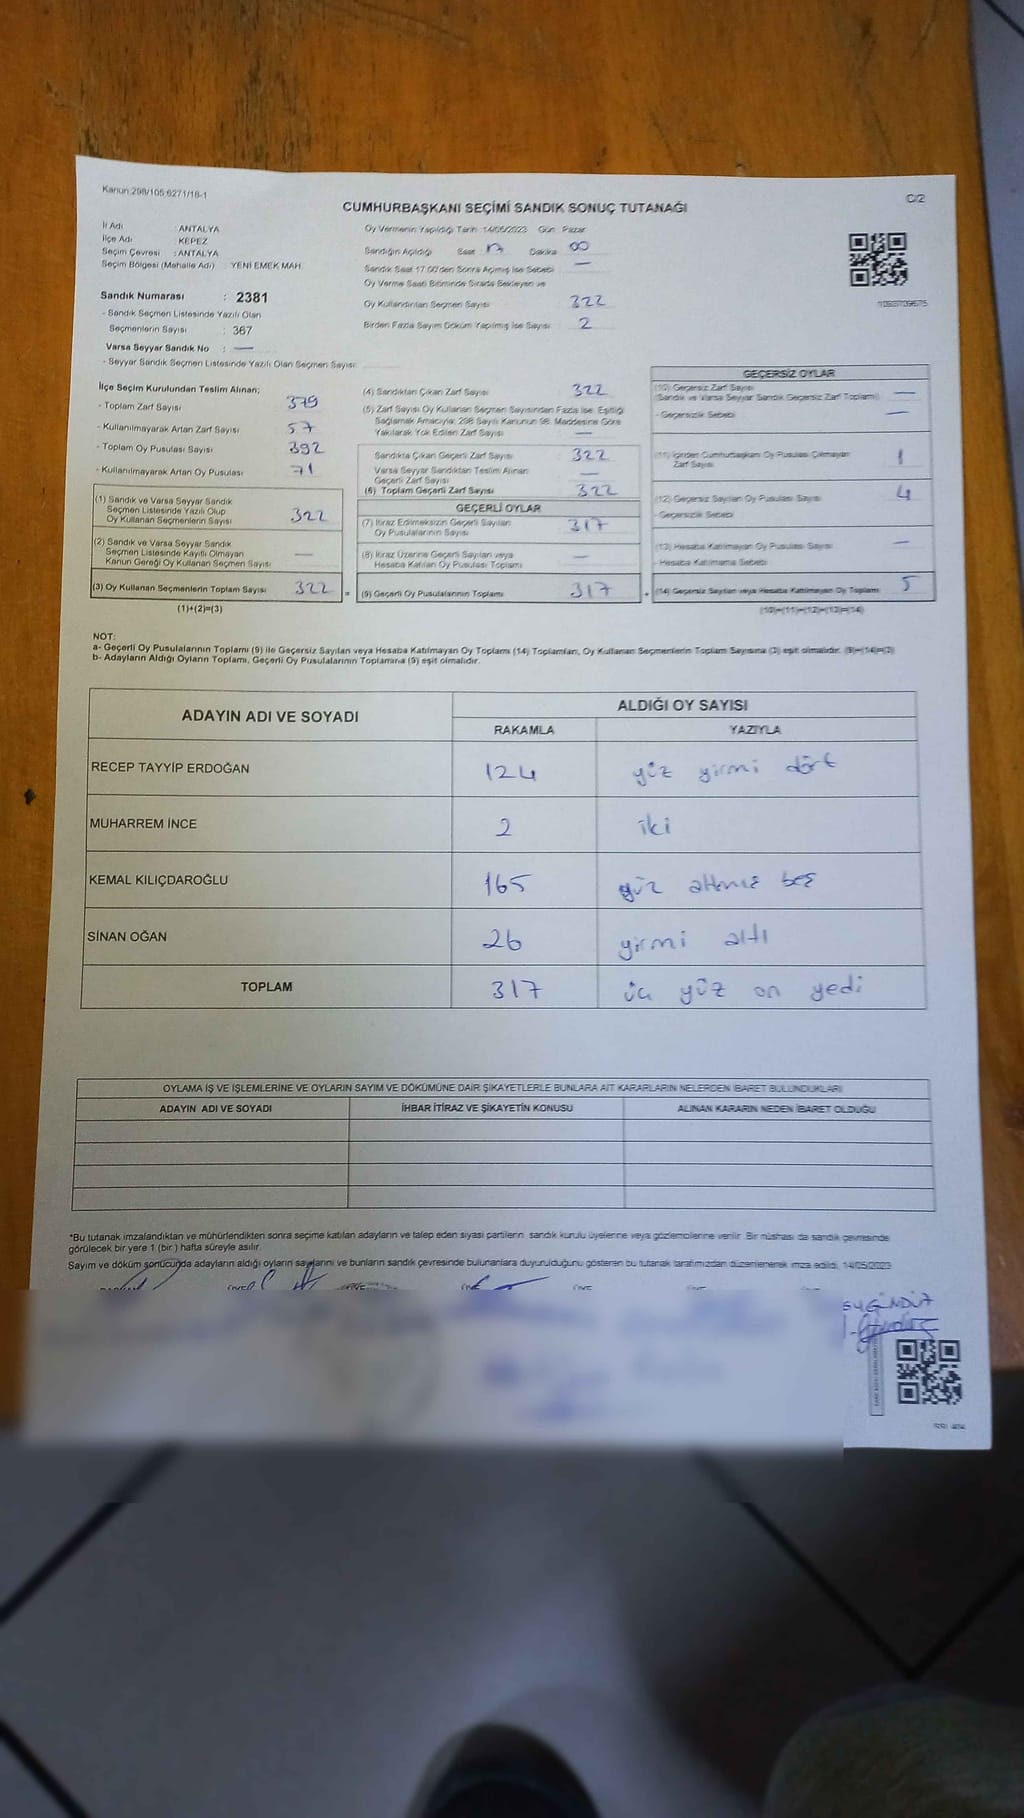 Kanun:298/105;6271/18-1
C/2
CUMHURBAŞKANI SEÇİMİ SANDIK SONUÇ TUTANAĞI
İl Adı : ANTALYA
İlçe Adı : KEPEZ
Seçim Çevresi : ANTALYA
Seçim Bölgesi (Mahalle Adı) : YENİ EMEK MAH.
Sandık Numarası : 2381
- Sandık Seçmen Listesinde Yazılı Olan
Seçmenlerin Sayısı : 367
Varsa Seyyar Sandık No : —
- Seyyar Sandık Seçmen Listesinde Yazılı Olan Seçmen Sayısı:
Oy Vermenin Yapıldığı Tarih :14/05/2023 Gün : Pazar
Sandığın Açıldığı Saat : 17 Dakika : 00
Sandık Saat 17:00'den Sonra Açılmış İse Sebebi : —
Oy Verme Saati Bitiminde Sırada Bekleyen ve
Oy Kullandırılan Seçmen Sayısı : 322
Birden Fazla Sayım Döküm Yapılmış İse Sayısı : 2
İlçe Seçim Kurulundan Teslim Alınan;
- Toplam Zarf Sayısı : 379
- Kullanılmayarak Artan Zarf Sayısı : 57
- Toplam Oy Pusulası Sayısı : 392
- Kullanılmayarak Artan Oy Pusulası : 71
(1) Sandık ve Varsa Seyyar Sandık
Seçmen Listesinde Yazılı Olup
Oy Kullanan Seçmenlerin Sayısı : 322
(2) Sandık ve Varsa Seyyar Sandık
Seçmen Listesinde Kayıtlı Olmayan
Kanun Gereği Oy Kullanan Seçmen Sayısı : —
(3) Oy Kullanan Seçmenlerin Toplam Sayısı : 322
(1)+(2)=(3)
(4) Sandıktan Çıkan Zarf Sayısı : 322
(5) Zarf Sayısı Oy Kullanan Seçmen Sayısından Fazla İse, Eşitliği
Sağlamak Amacıyla; 298 Sayılı Kanunun 98. Maddesine Göre
Yakılarak Yok Edilen Zarf Sayısı : —
Sandıkta Çıkan Geçerli Zarf Sayısı : 322
Varsa Seyyar Sandıktan Teslim Alınan
Geçerli Zarf Sayısı : —
(6) Toplam Geçerli Zarf Sayısı : 322
GEÇERLİ OYLAR
(7) İtiraz Edilmeksizin Geçerli Sayılan
Oy Pusulalarının Sayısı : 317
(8) İtiraz Üzerine Geçerli Sayılan veya
Hesaba Katılan Oy Pusulası Toplamı : —
= (9) Geçerli Oy Pusulalarının Toplamı : 317
GEÇERSİZ OYLAR
(10) Geçersiz Zarf Sayısı
(Sandık ve Varsa Seyyar Sandık Geçersiz Zarf Toplamı) : —
- Geçersizlik Sebebi : —
(11) İçinden Cumhurbaşkanı Oy Pusulası Çıkmayan
Zarf Sayısı : 1
(12) Geçersiz Sayılan Oy Pusulası Sayısı : 4
- Geçersizlik Sebebi :
(13) Hesaba Katılmayan Oy Pusulası Sayısı : —
- Hesaba Katılmama Sebebi :
+ (14) Geçersiz Sayılan veya Hesaba Katılmayan Oy Toplamı : 5
(10)+(11)+(12)+(13)=(14)
NOT:
a- Geçerli Oy Pusulalarının Toplamı (9) ile Geçersiz Sayılan veya Hesaba Katılmayan Oy Toplamı (14) Toplamları, Oy Kullanan Seçmenlerin Toplam Sayısına (3) eşit olmalıdır. (9)+(14)=(3)
b- Adayların Aldığı Oyların Toplamı, Geçerli Oy Pusulalarının Toplamına (9) eşit olmalıdır.
ADAYIN ADI VE SOYADI
ALDIĞI OY SAYISI
RAKAMLA YAZIYLA
RECEP TAYYİP ERDOĞAN 124 yüz yirmi dört
MUHARREM İNCE 2 iki
KEMAL KILIÇDAROĞLU 165 yüz altmış beş
SİNAN OĞAN 26 yirmi altı
TOPLAM 317 üç yüz on yedi
OYLAMA İŞ VE İŞLEMLERİNE VE OYLARIN SAYIM VE DÖKÜMÜNE DAİR ŞİKAYETLERLE BUNLARA AİT KARARLARIN NELERDEN İBARET BULUNDUKLARI
ADAYIN ADI VE SOYADI İHBAR İTİRAZ VE ŞİKAYETİN KONUSU ALINAN KARARIN NEDEN İBARET OLDUĞU
*Bu tutanak imzalandıktan ve mühürlendikten sonra seçime katılan adayların ve talep eden siyasi partilerin sandık kurulu üyelerine veya gözlemcilerine verilir. Bir nüshası da sandık çevresinde
görülecek bir yere 1 (bir) hafta süreyle asılır.
Sayım ve döküm sonucunda adayların aldığı oyların sayılarını ve bunların sandık çevresinde bulunanlara duyurulduğunu gösteren bu tutanak tarafımızdan düzenlenerek imza edildi. 14/05/2023